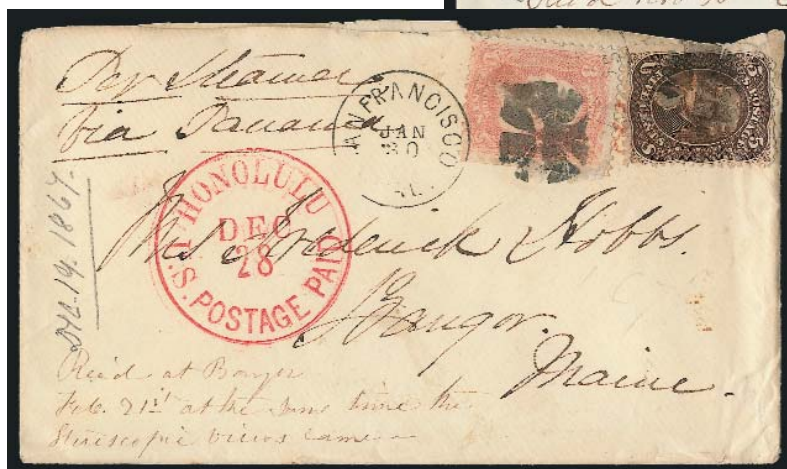 Per Steamer
via Panama
SAN FRANCISCO
JAN
30
CAL.
3
5
HONOLULU
DEC
28
U.S. POSTAGE PAID
Mrs Frederick Hobbs.
Bangor.
Maine.
Dec. 19. 1867.
Rec'd at Bangor
Feb. 21st at the same time the
Steriscopic views came